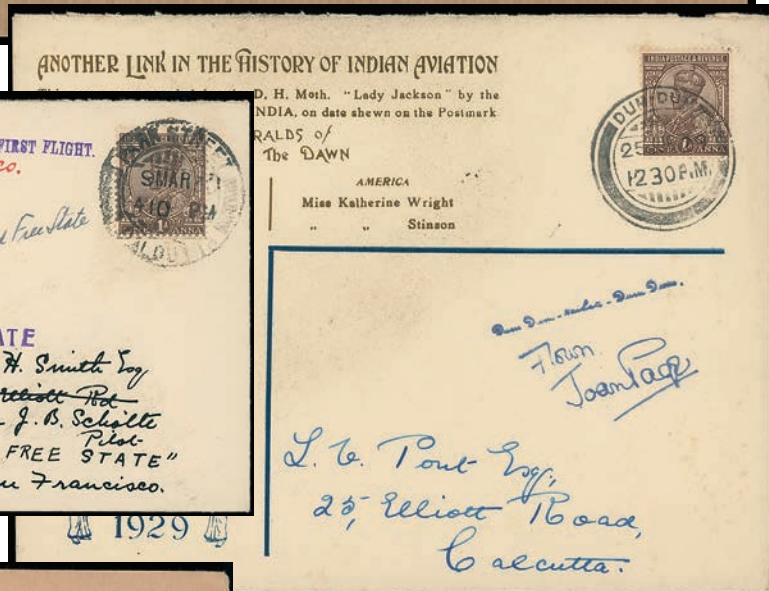 ANOTHER LINK IN THE HISTORY OF INDIAN AVIATION
D. H. Moth. "Lady Jackson" by the
NDIA, on date shewn on the Postmark
RALDS of
The DAWN
AMERICA
Miss Katherine Wright
" " Stinson
INDIA POSTAGE & REVENUE
ONE ANNA
DUM DUM
25
12 30 P.M.
Dum Dum
Flown
Joan Page
L. V. Pont Esq,
25, Elliott Road,
Calcutta.
FIRST FLIGHT.
co.
Free State
PARK STREET
9 MAR
4 10 PM
CALCUTTA
ATE
H. Smith Esq
Elliott Rd
J. B. Scholte
Pilot
FREE STATE"
n Francisco.
1929